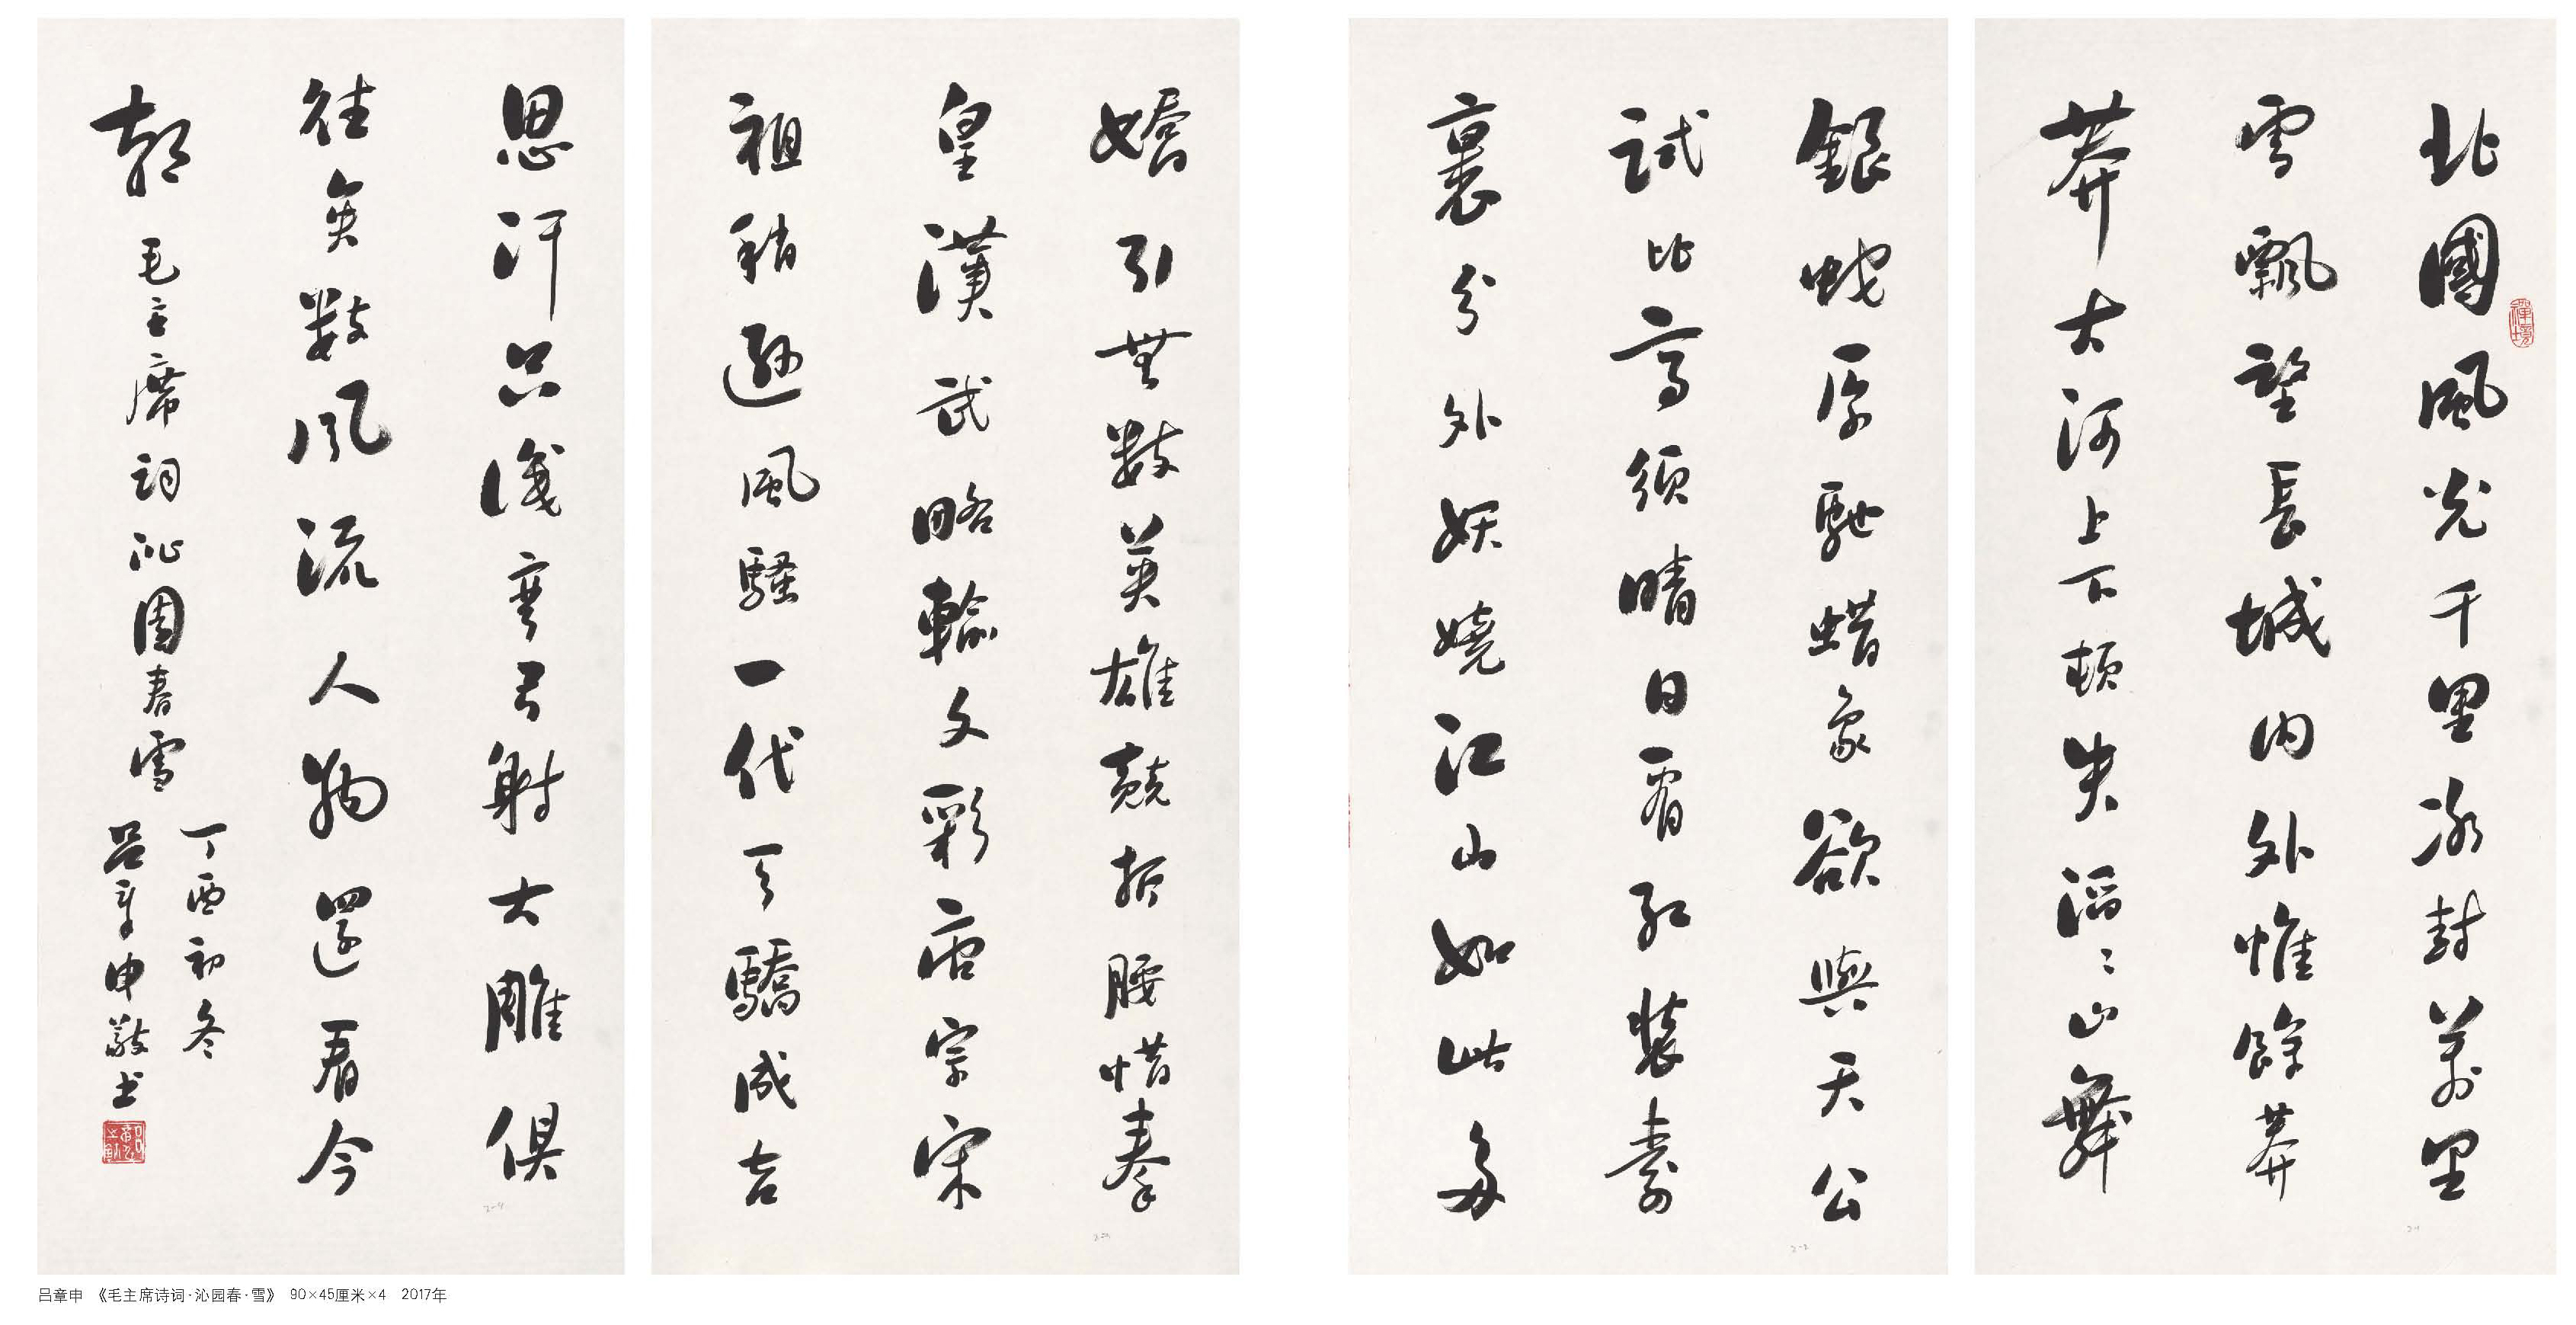 北國風光千里冰封萬里
雪飄望長城內外惟餘莽
莽大河上下頓失滔〻山舞
銀蛇原馳蜡象欲與天公
試比高須晴日看紅裝素
裹分外妖嬈江山如此多
嬌引無數英雄競折腰惜秦
皇漢武略輸文彩唐宗宋
祖稍遜風騷一代天驕成吉
思汗只識彎弓射大雕俱
往矣數風流人物還看今
朝 毛主席詞沁園春雪
丁酉初冬
呂章申敬书
禪境
吕章申 《毛主席诗词·沁园春·雪》 90×45厘米×4 2017年